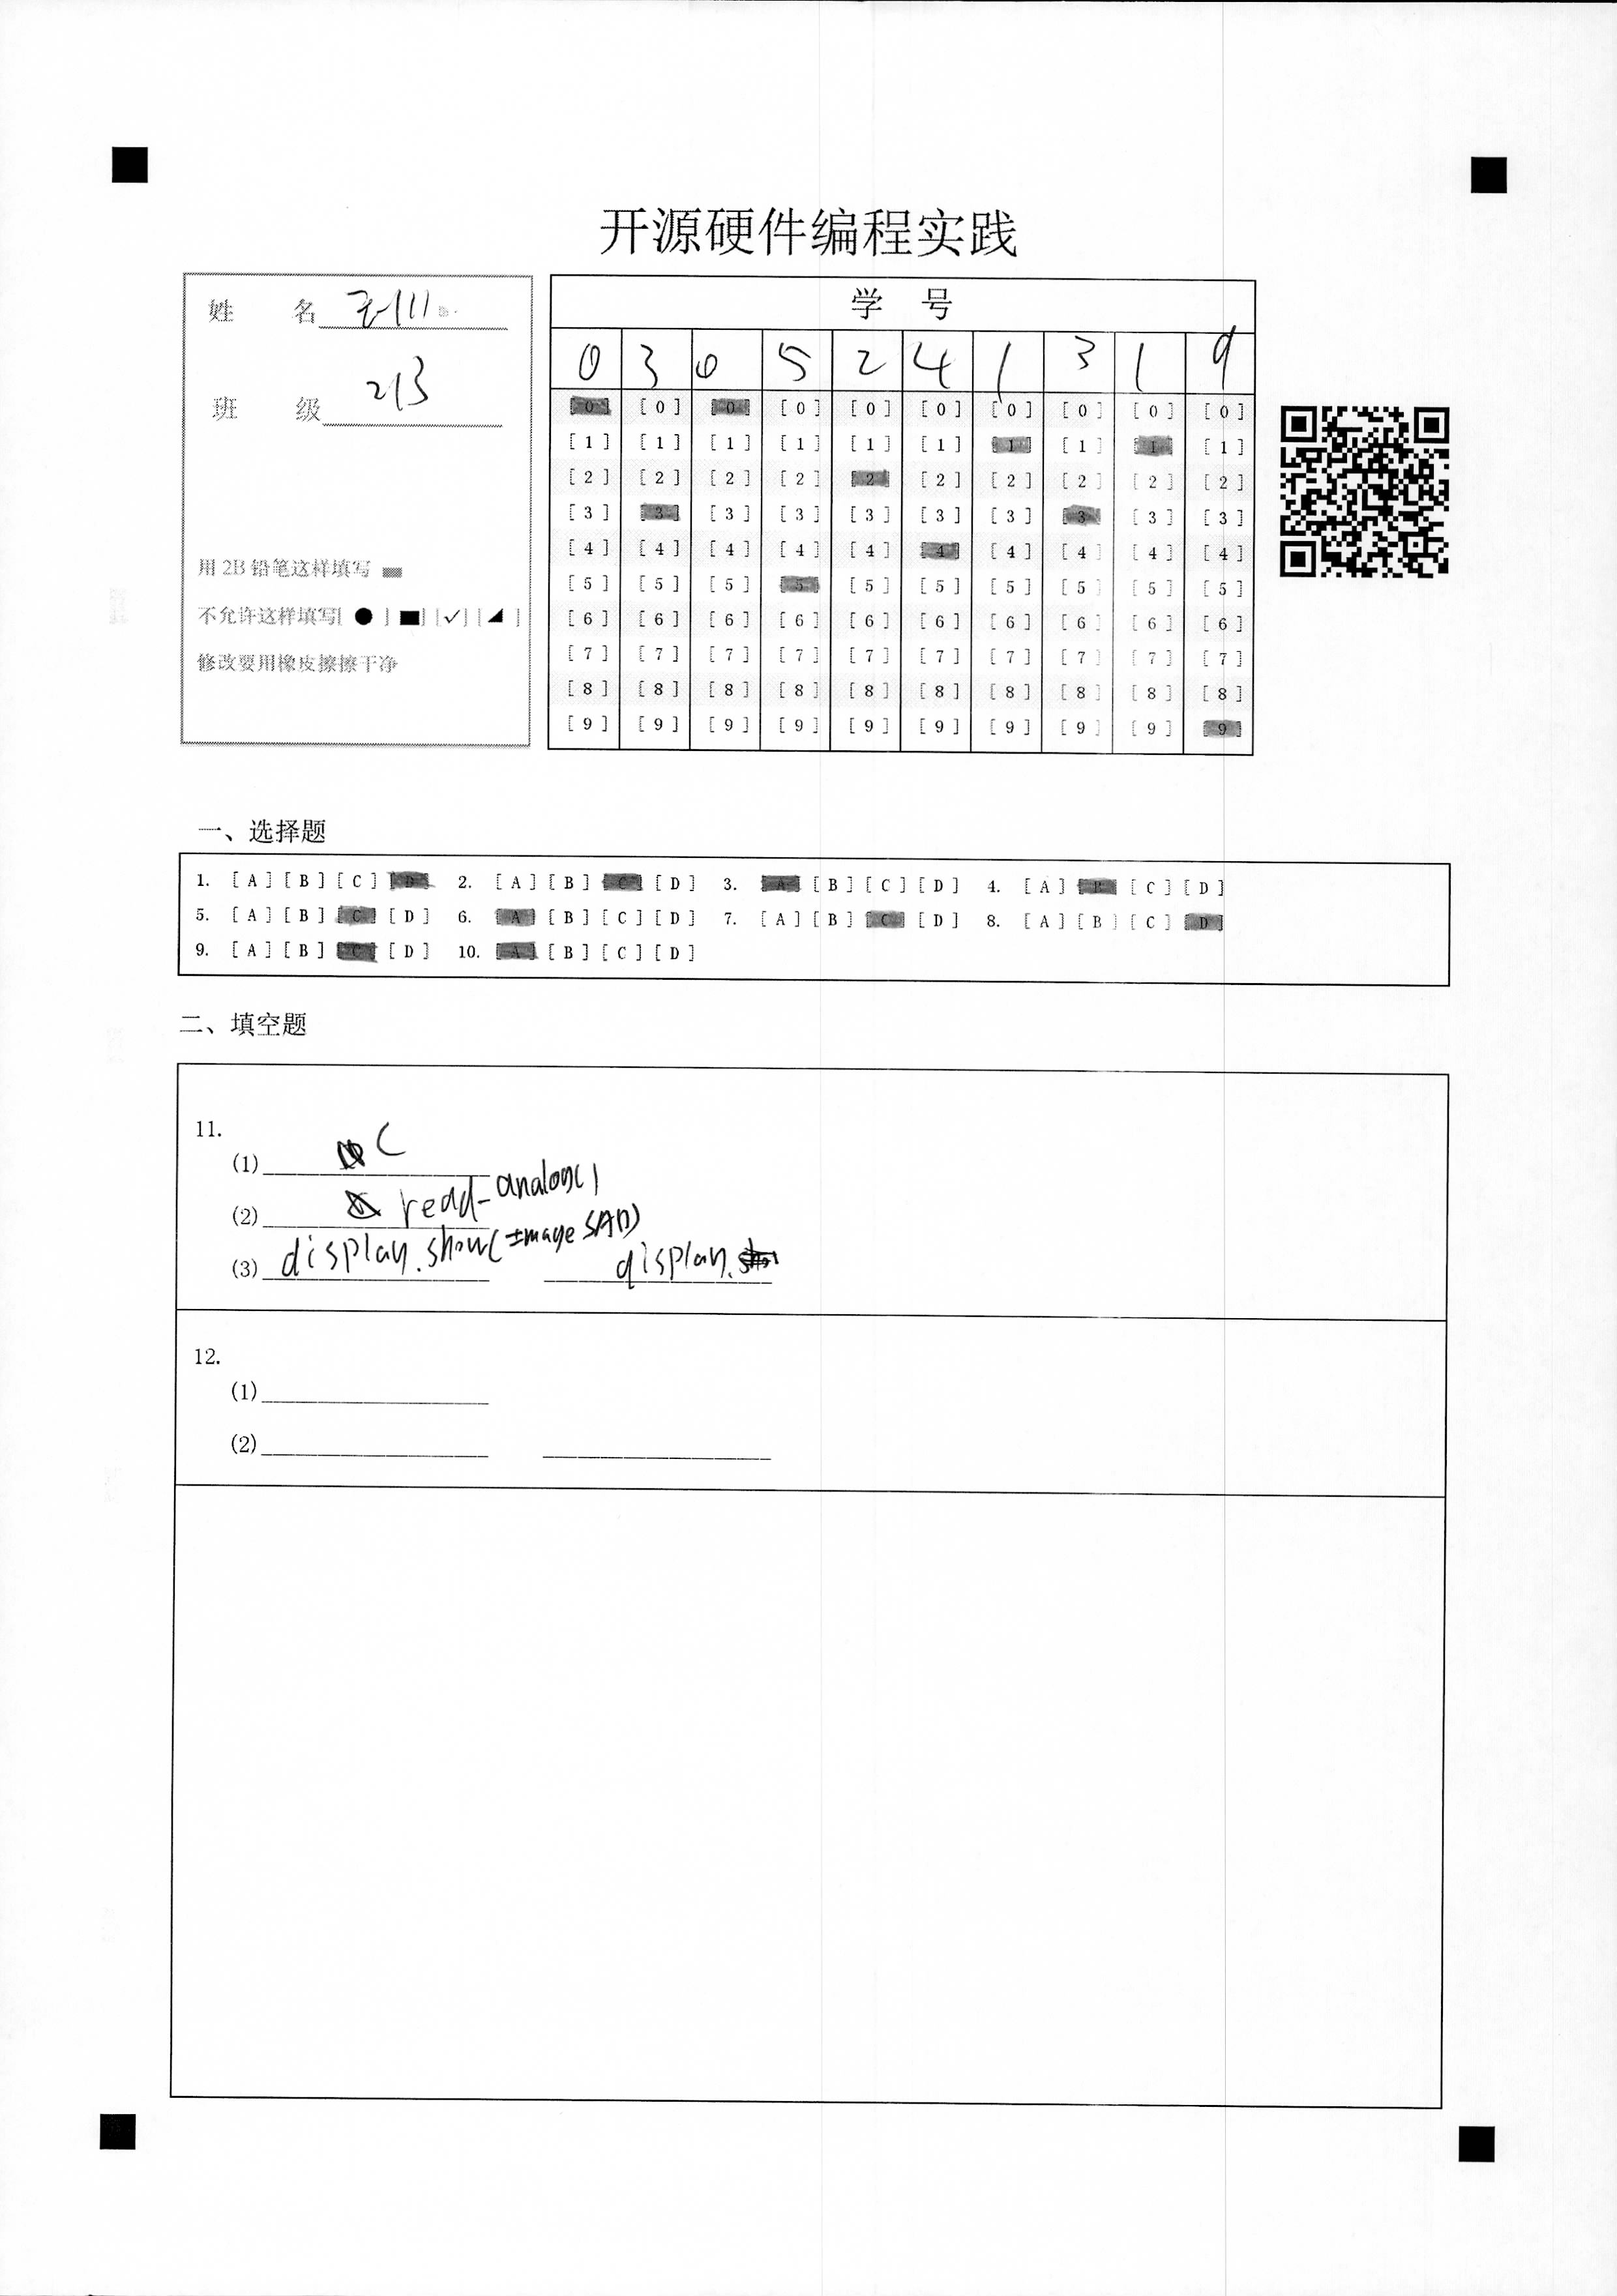 开源硬件编程实践
姓 名
班 级 213
用 2B 铅笔这样填写
不允许这样填写[ ● ] [■] [✓] [◢ ]
修改要用橡皮擦擦干净
学 号
0 3 0 5 2 4 1 3 1 9
[0] [0] [0] [0] [0] [0] [0] [0] [0] [0]
[1] [1] [1] [1] [1] [1] [1] [1] [1] [1]
[2] [2] [2] [2] [2] [2] [2] [2] [2] [2]
[3] [3] [3] [3] [3] [3] [3] [3] [3] [3]
[4] [4] [4] [4] [4] [4] [4] [4] [4] [4]
[5] [5] [5] [5] [5] [5] [5] [5] [5] [5]
[6] [6] [6] [6] [6] [6] [6] [6] [6] [6]
[7] [7] [7] [7] [7] [7] [7] [7] [7] [7]
[8] [8] [8] [8] [8] [8] [8] [8] [8] [8]
[9] [9] [9] [9] [9] [9] [9] [9] [9] [9]
一、选择题
1. [A] [B] [C] [D] 2. [A] [B] [C] [D] 3. [A] [B] [C] [D] 4. [A] [B] [C] [D]
5. [A] [B] [C] [D] 6. [A] [B] [C] [D] 7. [A] [B] [C] [D] 8. [A] [B] [C] [D]
9. [A] [B] [C] [D] 10. [A] [B] [C] [D]
二、填空题
11.
(1) C
(2) read-analog()
(3) display.show(Image SAD) display.
12.
(1)
(2)